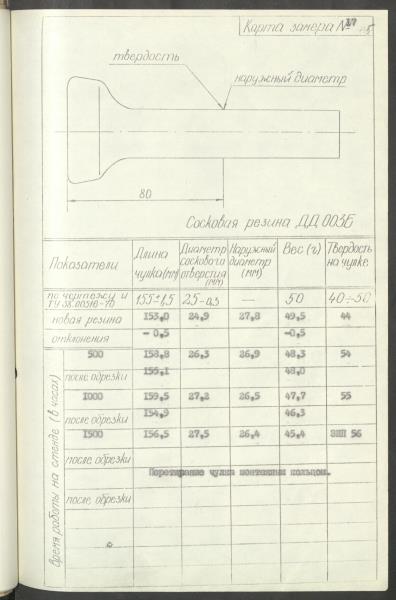 Карта замера № 17
твердость
наружный диаметр
80
Сосковая резина ДД 003Б
Показатели
Длина чулка (мм)
Диаметр соскового отверстия (мм)
Наружный диаметр (мм)
Вес (г)
Твердость на чулке
по чертежу и ТУ 38.00516-70 155±1,5 25-0,3 — 50 40÷50
новая резина 153,0 24,9 27,8 49,5 44
отклонения - 0,5 -0,5
Время работы на стенде (в часах)
500 158,8 26,3 26,9 48,3 54
после обрезки 155,1 48,0
1000 159,5 27,2 26,5 47,7 55
после обрезки 154,9 46,3
1500 156,5 27,5 26,4 45,4 56
после обрезки
Перетирание чулка монтажным кольцом.
после обрезки